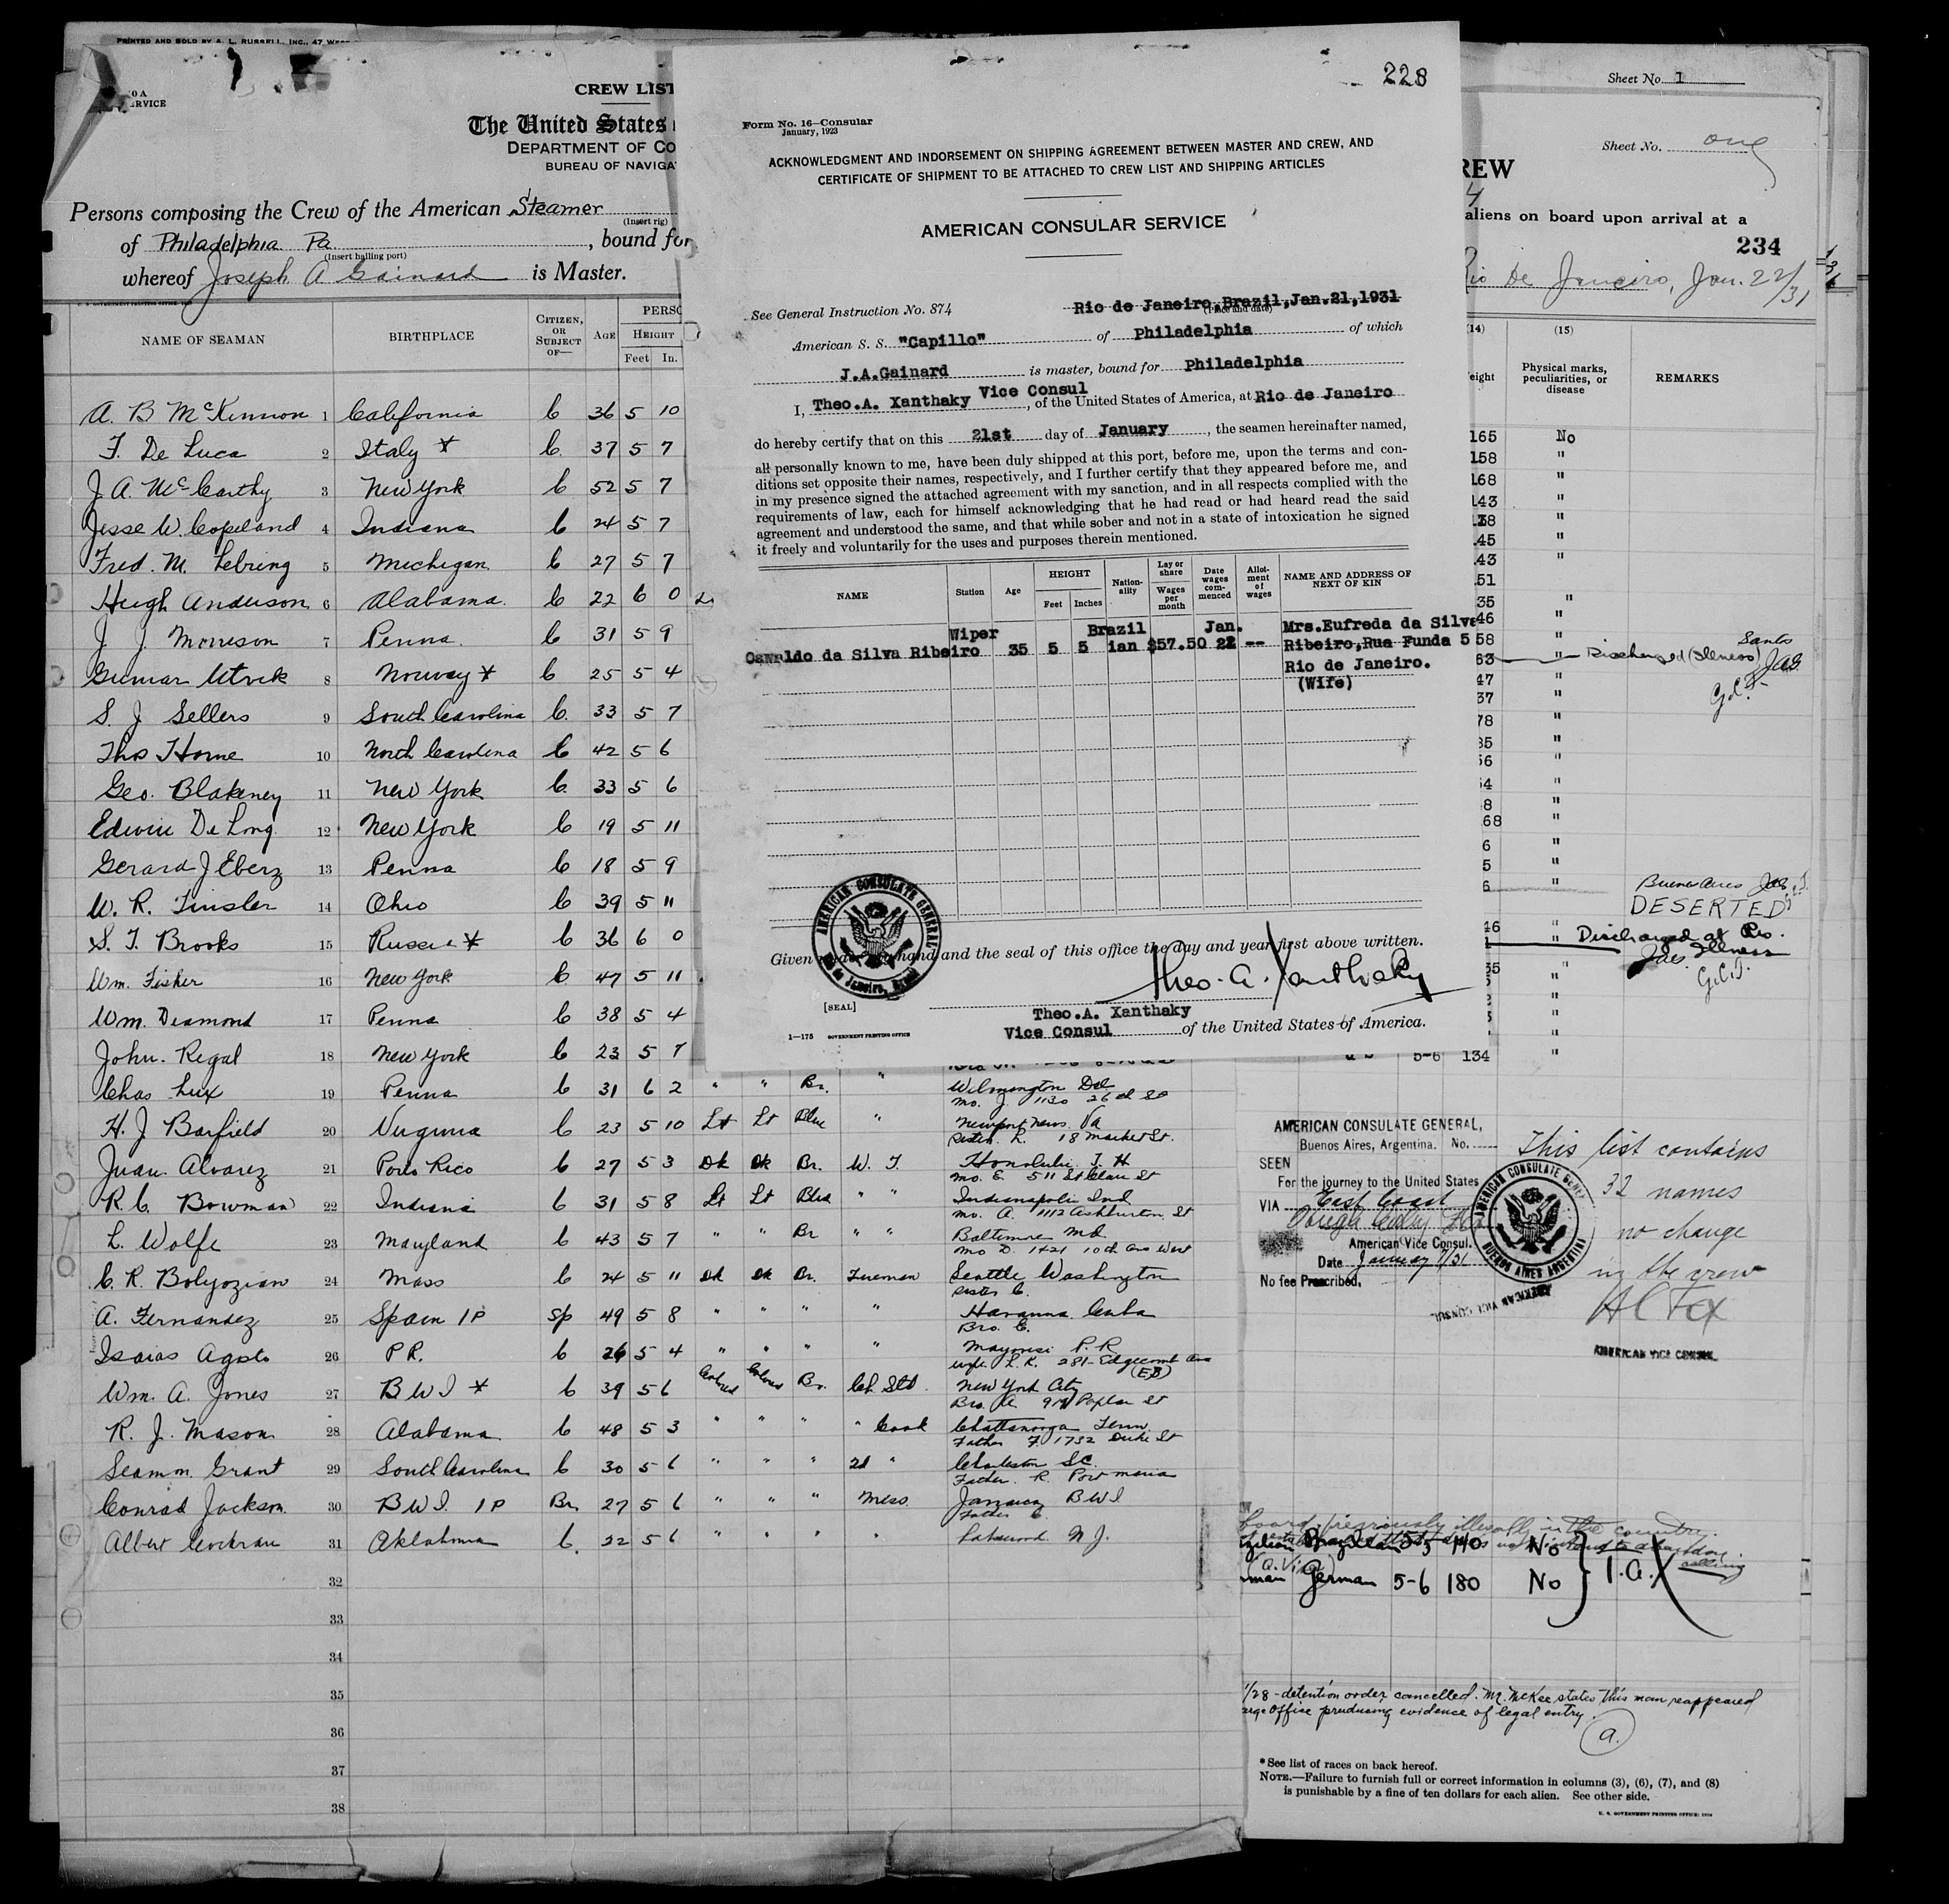 PRINTED AND SOLD BY A. L. RUSSELL, INC., 47
CREW LIST
The United States
DEPARTMENT OF CO
BUREAU OF NAVIGA
Persons composing the Crew of the American Steamer
(Insert rig)
of Philadelphia Pa. , bound for
(Insert hailing port)
whereof Joseph A Gainard is Master.
NAME OF SEAMAN BIRTHPLACE CITIZEN, OR SUBJECT OF— AGE PERSO
HEIGHT
Feet In.
A. B McKinnon 1 California C 36 5 10
F. De Luca 2 Italy * C. 37 5 7
J A. McCarthy 3 New York C 52 5 7
Jesse W. Copeland 4 Indiana C 24 5 7
Fred. M. Lebring 5 Michigan C 27 5 7
Hugh Anderson 6 Alabama. C 22 6 0
J. J. Morreson 7 Penna. C 31 5 9
Gunnar Utvik 8 Norway * C 25 5 4
S. J Sellers 9 South Carolina C. 33 5 7
Thos Horne 10 North Carolina C 42 5 6
Geo. Blakeney 11 New York C. 33 5 6
Edwin De Long. 12 New York C 19 5 11
Gerard J Eberz 13 Penna C 18 5 9
W. R. Tinsler 14 Ohio C 39 5 11
S. T. Brooks 15 Russia * C 36 6 0
Wm. Fisher 16 New York C 47 5 11
Wm. Diamond 17 Penna C 38 5 4
John. Regal 18 New York C 23 5 7
Chas Lux 19 Penna C 31 6 2 " " Br. " Wilmington Del
Mo. J. 1130 26th St
H. J Barfield 20 Virginia C 23 5 10 Lt Lt Blue " Newport News. Va
Sister. R. 18 Market St.
Juan Alvarez 21 Porto Rico C 27 5 3 Dk Dk Br. W. T. Honolulu T. H
Mo. E. 511 St Clair St
R. C. Bowman 22 Indiana C 31 5 8 Lt Lt Blue " " Indianapolis Ind
Mo. A. 1112 Ashburton St
L. Wolfe 23 Maryland C 43 5 7 " " Br " " Baltimore Md.
Mo D. 1421 10th Ave West
C. R. Bolyozian 24 Mass C 24 5 11 Dk Dk Br. Fireman Seattle Washington
Sister C.
A. Fernandez 25 Spain 1P Sp 49 5 8 " " " " Havanna Cuba
Bro. E.
Isaias Agosto 26 P.R. C 26 5 4 " " " " P. R
Wife L. R. 281- Edgecomb Ave
(EB)
Wm. A. Jones 27 B W I * C 39 5 6 Colored Colored Br. Ch. Std. New York City
R. J. Mason 28 Alabama C 48 5 3 " " " Cook Chattanooga Tenn
Father F. 1732 Duke St
Grant 29 South Carolina C 30 5 6 " " " 2d " Charleston S.C.
Father. R. Port Maria
Conrad Jackson 30 B W I. 1P Br. 27 5 6 " " " Mess. Jamaica B W I
Father C.
Albert Cochran 31 Oklahoma C. 22 5 6 " " " " Lakewood N J.
32
33
34
35
36
37
38
228
Form No. 16—Consular
January, 1923
ACKNOWLEDGMENT AND INDORSEMENT ON SHIPPING AGREEMENT BETWEEN MASTER AND CREW, AND
CERTIFICATE OF SHIPMENT TO BE ATTACHED TO CREW LIST AND SHIPPING ARTICLES
AMERICAN CONSULAR SERVICE
See General Instruction No. 874 Rio de Janeiro,Brazil,Jan.21,1931
(Place and date)
American S. S. "Capillo" of Philadelphia of which
J.A.Gainard is master, bound for Philadelphia
I, Theo.A. Xanthaky Vice Consul, of the United States of America, at Rio de Janeiro
do hereby certify that on this 21st day of January, the seamen hereinafter named,
all personally known to me, have been duly shipped at this port, before me, upon the terms and con-
ditions set opposite their names, respectively, and I further certify that they appeared before me, and
in my presence signed the attached agreement with my sanction, and in all respects complied with the
requirements of law, each for himself acknowledging that he had read or had heard read the said
agreement and understood the same, and that while sober and not in a state of intoxication he signed
it freely and voluntarily for the uses and purposes therein mentioned.
NAME Station Age HEIGHT Feet Inches Nation-ality Lay or share Wages per month Date wages com-menced Allot-ment of wages NAME AND ADDRESS OF NEXT OF KIN
Wiper Brazil Jan. Mrs.Eufreda da Silva
Oswaldo da Silva Ribeiro 35 5 5 ian $57.50 22 -- Ribeiro,Rua Funda 5
Rio de Janeiro.
(Wife)
AMERICAN CONSULATE GENERAL
Rio de Janeiro, Brazil
Given under my hand and the seal of this office the day and year first above written.
Theo. A. Xanthaky
[SEAL]
Theo.A. Xanthaky
Vice Consul of the United States of America.
1—175 GOVERNMENT PRINTING OFFICE
Sheet No. 1
Sheet No. one
REW
aliens on board upon arrival at a
234
Rio De Janeiro, Jan. 22/31
(14) (15)
eight Physical marks, peculiarities, or disease REMARKS
165 No
158 "
168 "
143 "
Santos
Discharged (Illness) Jas.
G.C.T.
Buenos Aires
DESERTED
Discharged at Rio.
Illness
G.C.T.
5-6 134 "
AMERICAN CONSULATE GENERAL,
Buenos Aires, Argentina. No.
SEEN
For the journey to the United States
VIA East Coast
American Vice Consul.
Date January 7/31
No fee Prescribed.
AMERICAN CONSULATE GENERAL
BUENOS AIRES ARGENTINA
AMERICAN VICE CONSUL
This list contains
32 names
no change
in the crew
A C Fox
AMERICAN VICE CONSUL
board previously illegally in the country.
Brazilian 5-5 140 No
German 5-6 180 No
1/28 - detention order cancelled. Mr. McKee states this man reappeared
arge Office producing evidence of legal entry.
a.
*See list of races on back hereof.
NOTE.—Failure to furnish full or correct information in columns (3), (6), (7), and (8)
is punishable by a fine of ten dollars for each alien. See other side.
U. S. GOVERNMENT PRINTING OFFICE